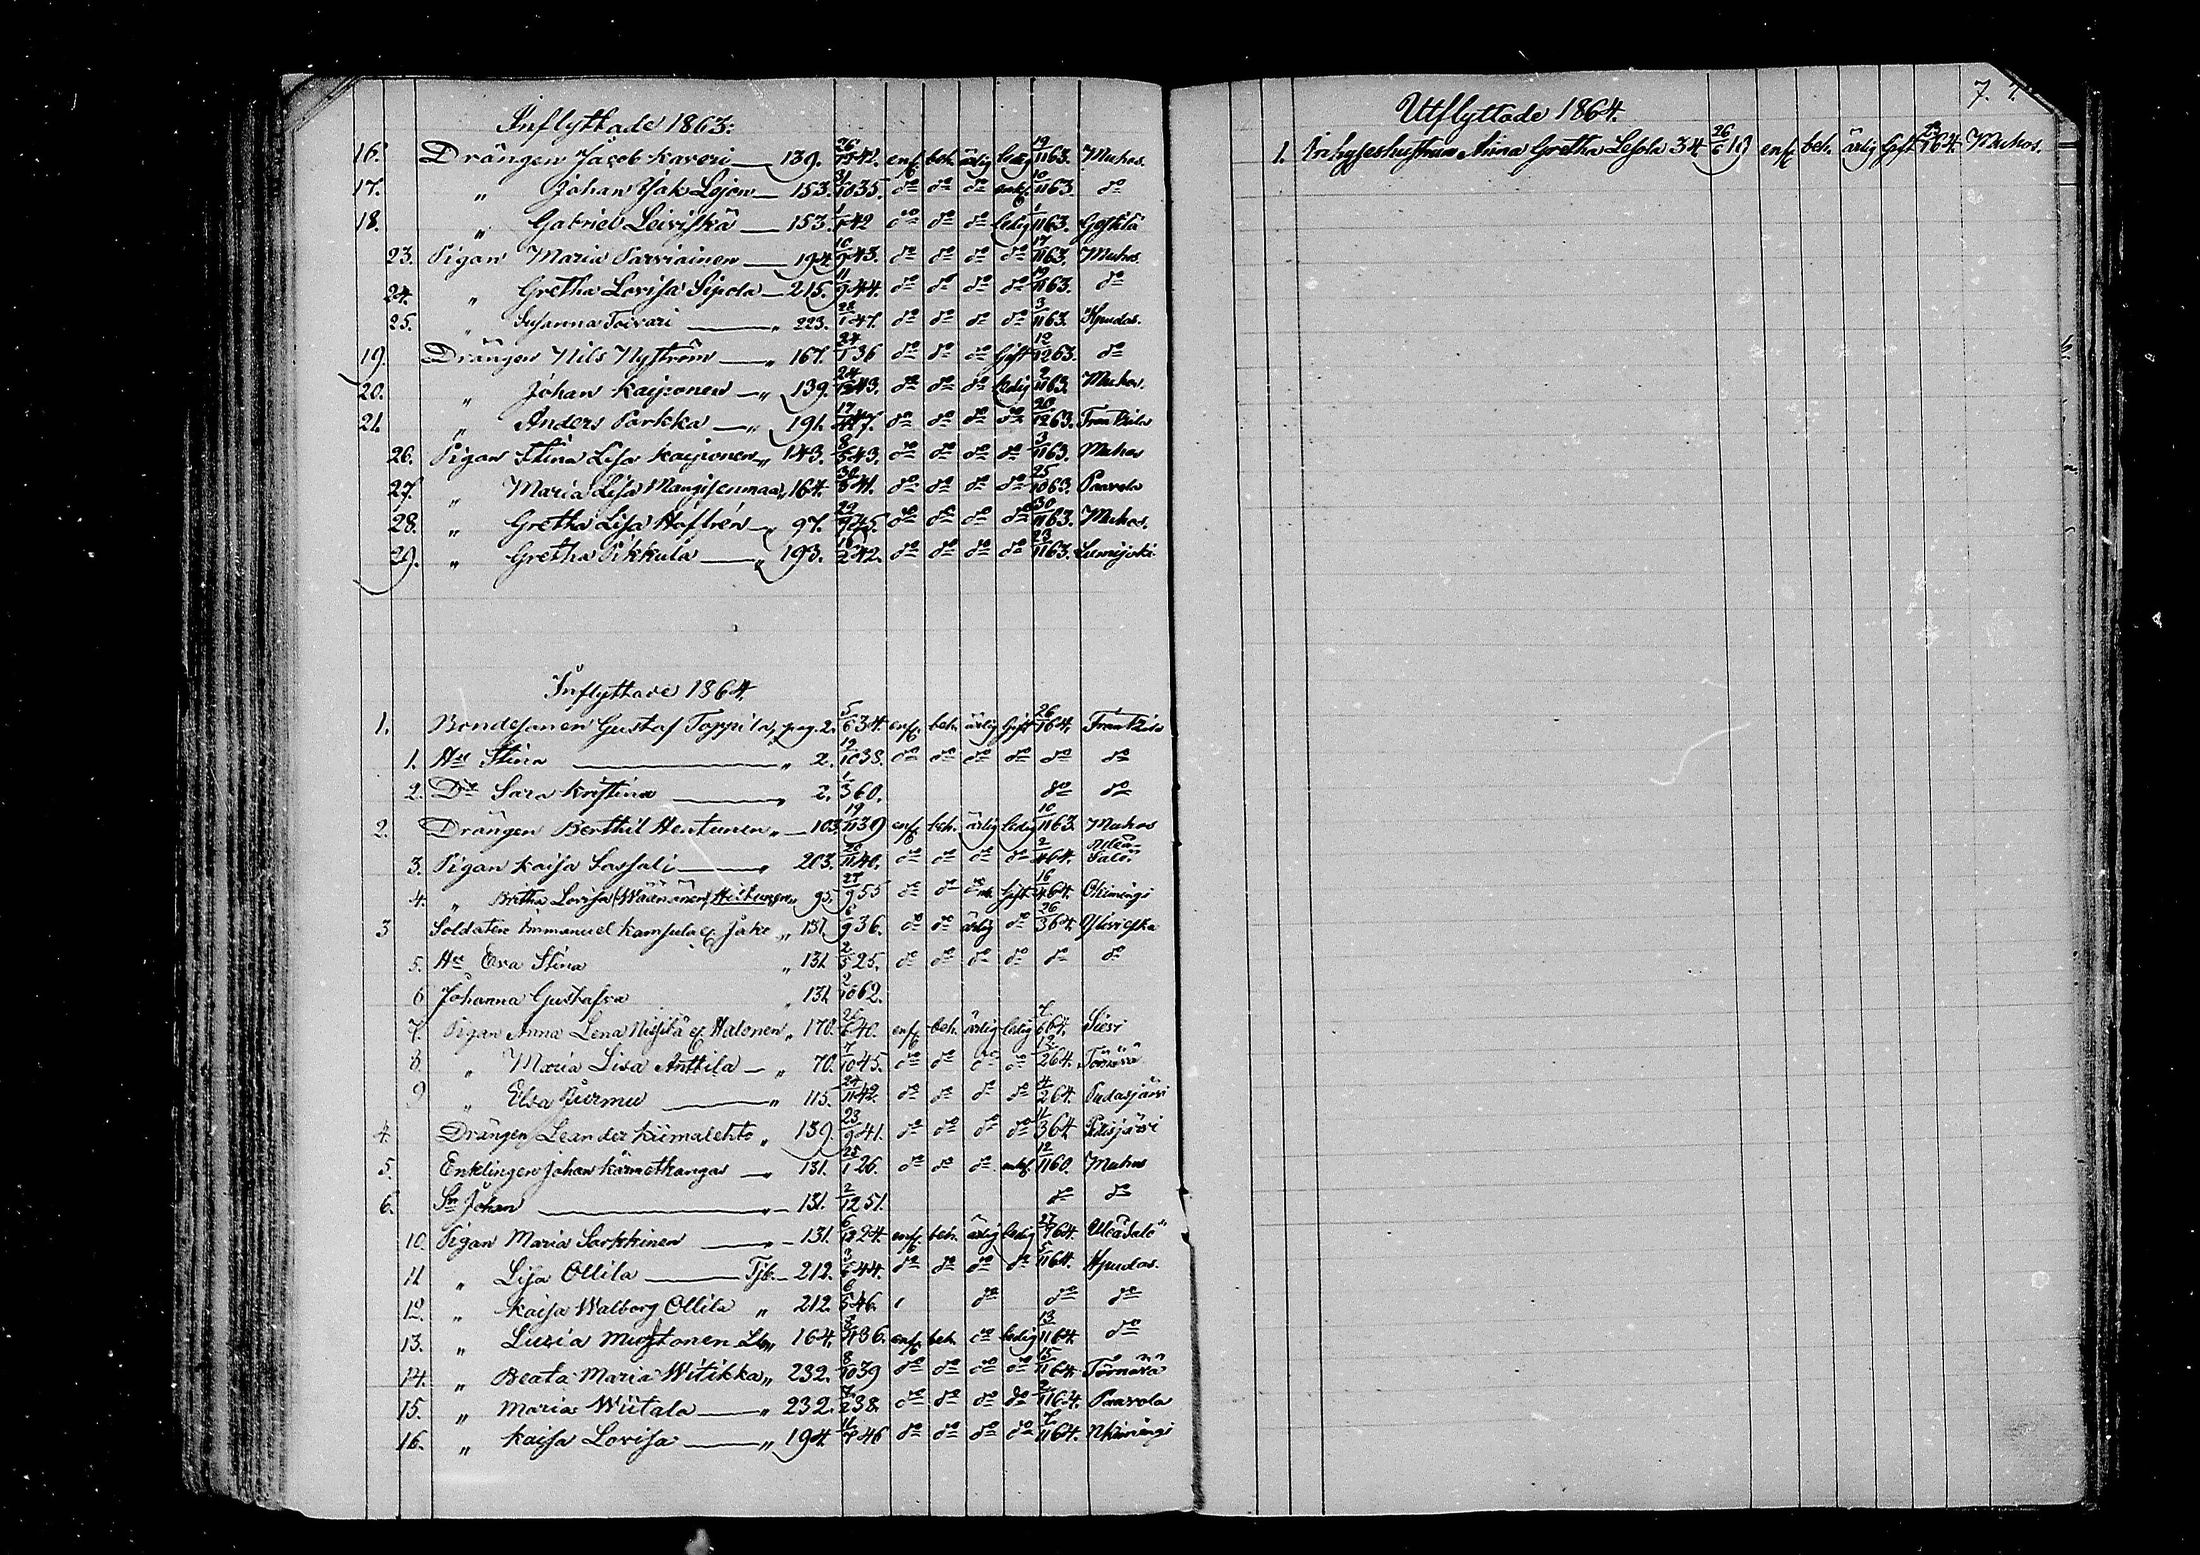 Inflyttade 1863.
16. Drängen Jacob Kaveri — 139. 26/12 42. enf. beh. ärlig ledig 19/11 63. Muhos.
17. " Johan Isak Lejon — 153. 31/10 35. do do do enkl. 10/11 63. do
18. " Gabriel Leiviskä — 153. 1/1 42 do do do ledig 1/11 63.
23. Pigan Maria Parviainen — 194. 10/9 43. do do do do 17/11 63. Muhos.
24. " Gretha Lovisa Sipola — 215. 11/9 44. do do do do 19/11 63. do
25. " Susanna Toivari — " 223. 28/1 47. do do do do 3/11 63. Hpudas.
19. Drängen Nils Nyström — " 167. 24/1 36 do do do gift 12/12 63. do
20. " Johan Kaiponen — " 139. 24/12 43. do do do ledig 2/11 63. Muhos.
21. " Anders Parkka — " 191. 17/ 47. do do do do 20/12 63. Frantsila
26. Pigan Stina Lisa Kaiponen " 143. 8/5 43. do do do do 3/11 63. Muhos
27. " Maria Lisa Mangisenmaa " 164. 30/ 41. do do do do 25/10 63. Paavola
28. " Gretha Lisa Hoffrén — " 97. 29/9 45. do do do do 30/11 63. Muhos.
29. " Gretha Pikkula — " 193. 16/2 42. do do do do 23/11 63. Lumijoki
Inflyttade 1864.
1. Bondesonen Gustaf Toppila, pag. 2. 5/6 34. enf. beh. ärlig gift 26/1 64. Frantsila
1. Hu Stina — " 2. 12/10 38. do do do do do do
2. Dr Sara Kristina — " 2. 1/3 60. do do
2. Drängen Berthil Heutunen " — 103. 19/11 39 enf. beh. ärlig ledig 10/11 63. Muhos
3. Pigan Kaisa Sassali — " 203. 20/11 40. do do do do 2/4 64. Uleå-Salo.
4. " Bretha Lovisa (Väänänen) Heikuinen " 95. 27/9 55 do do gift 16/4 64. Okiminge
3 Soldaten Emmanuel Kamsula e. Jake " 131. 6/9 36. do do ärlig do 26/3 64. Ylivieska
5. Hu Eva Stina " 131. 2/5 25. do do do do do do
6 Johanna Gustafva " 131. 2/10 62.
7. Pigan Anna Lena Niskilä e. Halonen " 170. 26/6 40. enf. beh. ärlig ledig 7/6 64. Sievi
8. " Maria Lisa Anttila — " 70. 7/10 45. do do do do 12/2 64. Törnävä
9 " Elsa Purmu — " 115. 24/11 42. do do do do 4/2 64. Pudasjärvi
4. Drängen Leander Kiimalehto " 139. 23/9 41. do do do do 11/3 64
5. Enklingen Johan Kärnetkangas — 131. 25/1 26. do do do enkl. 12/11 60. Muhos
6. Sn Johan — " 131. 2/12 51. do do
10. Pigan Maria Sarkkinen — " 131. 6/12 24. enf. beh. ärlig ledig 27/9 64. Uleåsalo
11 " Lisa Ollila — Tjb. — 212. 3/6 44. do do do do 5/11 64. Hpudas.
12. " Kaisa Walborg Ollila " 212. 6/5 46. do do do
13. " Lusia Mustonen " 164. 3/4 36. enf. beh. do ledig 13/11 64. do
14. " Beata Maria Witikka " 232. 8/10 39 do do do do 15/11 64. Törnävä
15. " Maria Wiitala — " 232. 7/2 38. do do do do 2/11 64. Paavola
16. " Kaisa Lovisa — " 194. 11/7 46 do do do do 7/11 64.
7. 7.
Utflyttade 1864.
1. Inhyseshustrun Anna Gretha Lesola 34. 26/6 19 enf. beh. ärlig gift 23/1 64. Muhos.